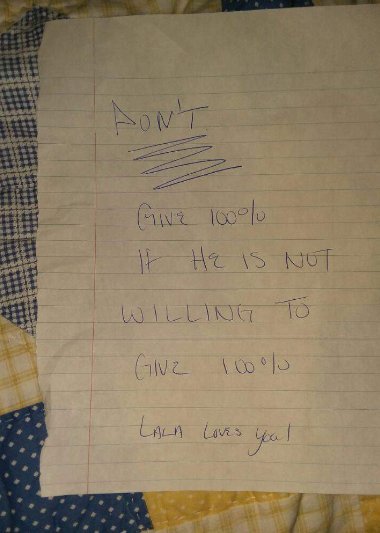 DON'T
GIVE 100%
IF HE IS NOT
WILLING TO
GIVE 100%
LALA LOVES you!